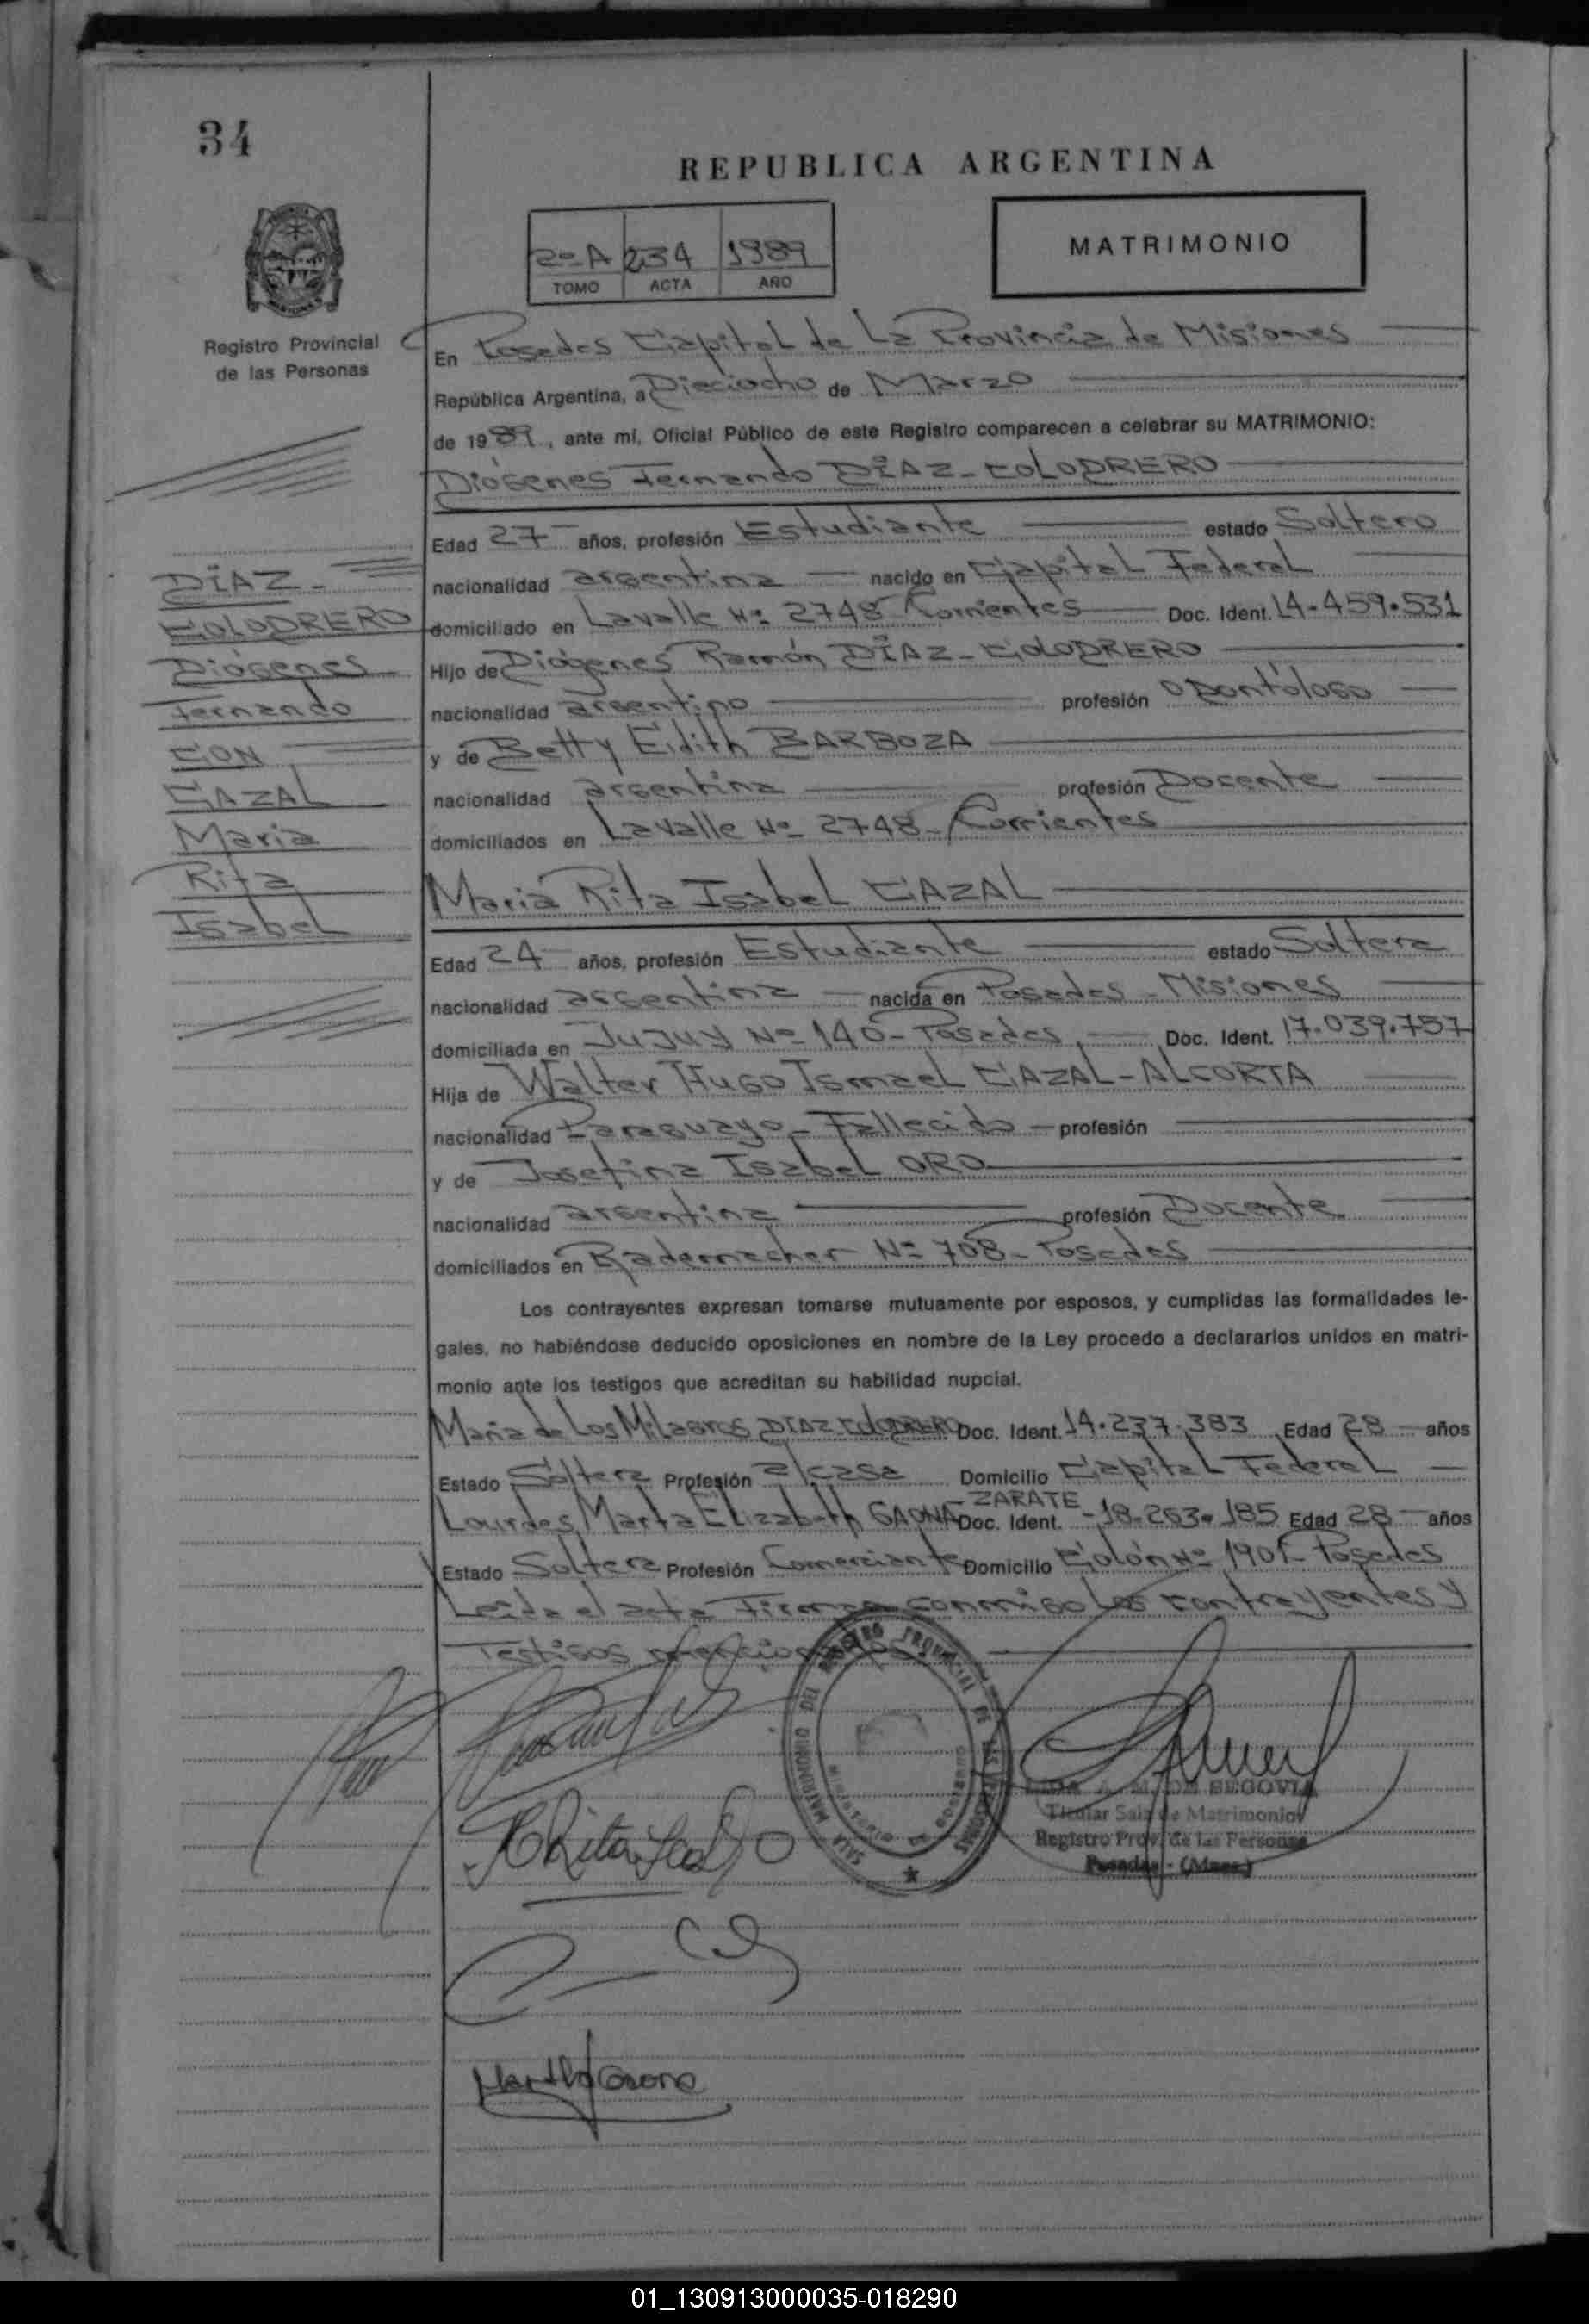 34
REPUBLICA ARGENTINA
2º A 234 1989
TOMO ACTA AÑO
MATRIMONIO
Registro Provincial
de las Personas
En Posadas Capital de La Provincia de Misiones
República Argentina, a Dieciocho de Marzo
de 1989, ante mí, Oficial Público de este Registro comparecen a celebrar su MATRIMONIO:
Diógenes Fernando DÍAZ-COLODRERO
Edad 27 años, profesión Estudiante estado Soltero
nacionalidad argentina nacido en Capital Federal
domiciliado en Lavalle Nº 2748 Corrientes Doc. Ident. 14.459.531
Hijo de Diógenes Ramón DÍAZ-COLODRERO
nacionalidad argentino profesión Odontólogo
y de Betty Edith BARBOZA
nacionalidad argentina profesión Docente
domiciliados en Lavalle Nº 2748-Corrientes
DÍAZ-
COLODRERO
Diógenes
Fernando
CON
CAZAL
Maria
Rita
Isabel
Maria Rita Isabel CAZAL
Edad 24 años, profesión Estudiante estado Soltera
nacionalidad argentina nacida en Posadas - Misiones
domiciliada en JuJuy Nº 140-Posadas Doc. Ident. 17.039.757
Hija de Walter Hugo Ismael CAZAL-ALCORTA
nacionalidad Paraguayo-Fallecido profesión
y de Josefina Isabel ORO
nacionalidad argentina profesión Docente
domiciliados en Rademacher Nº 708-Posadas
Los contrayentes expresan tomarse mutuamente por esposos, y cumplidas las formalidades le-
gales, no habiéndose deducido oposiciones en nombre de la Ley procedo a declararlos unidos en matri-
monio ante los testigos que acreditan su habilidad nupcial.
Maria de Los Milagros DIAZ COLODRERO Doc. Ident. 14.237.383 Edad 28 años
Estado Soltera Profesión a/casa Domicilio Capital Federal
Lourdes Marta Elizabeth GAONA-ZARATE Doc. Ident. -18.263.185 Edad 28 años
Estado Soltera Profesión Comerciante Domicilio Colón Nº 1901-Posadas
Leída el acta Firman conmigo los contrayentes y
Testigos mencionados
SALA MATRIMONIO DEL REGISTRO PROVINCIAL DE LAS PERSONAS
MINISTERIO DE GOBIERNO
LIDA A. M. DE SEGOVIA
Titular Sala de Matrimonios
Registro Prov. de las Personas
Posadas - (Mnes.)
01_130913000035-018290